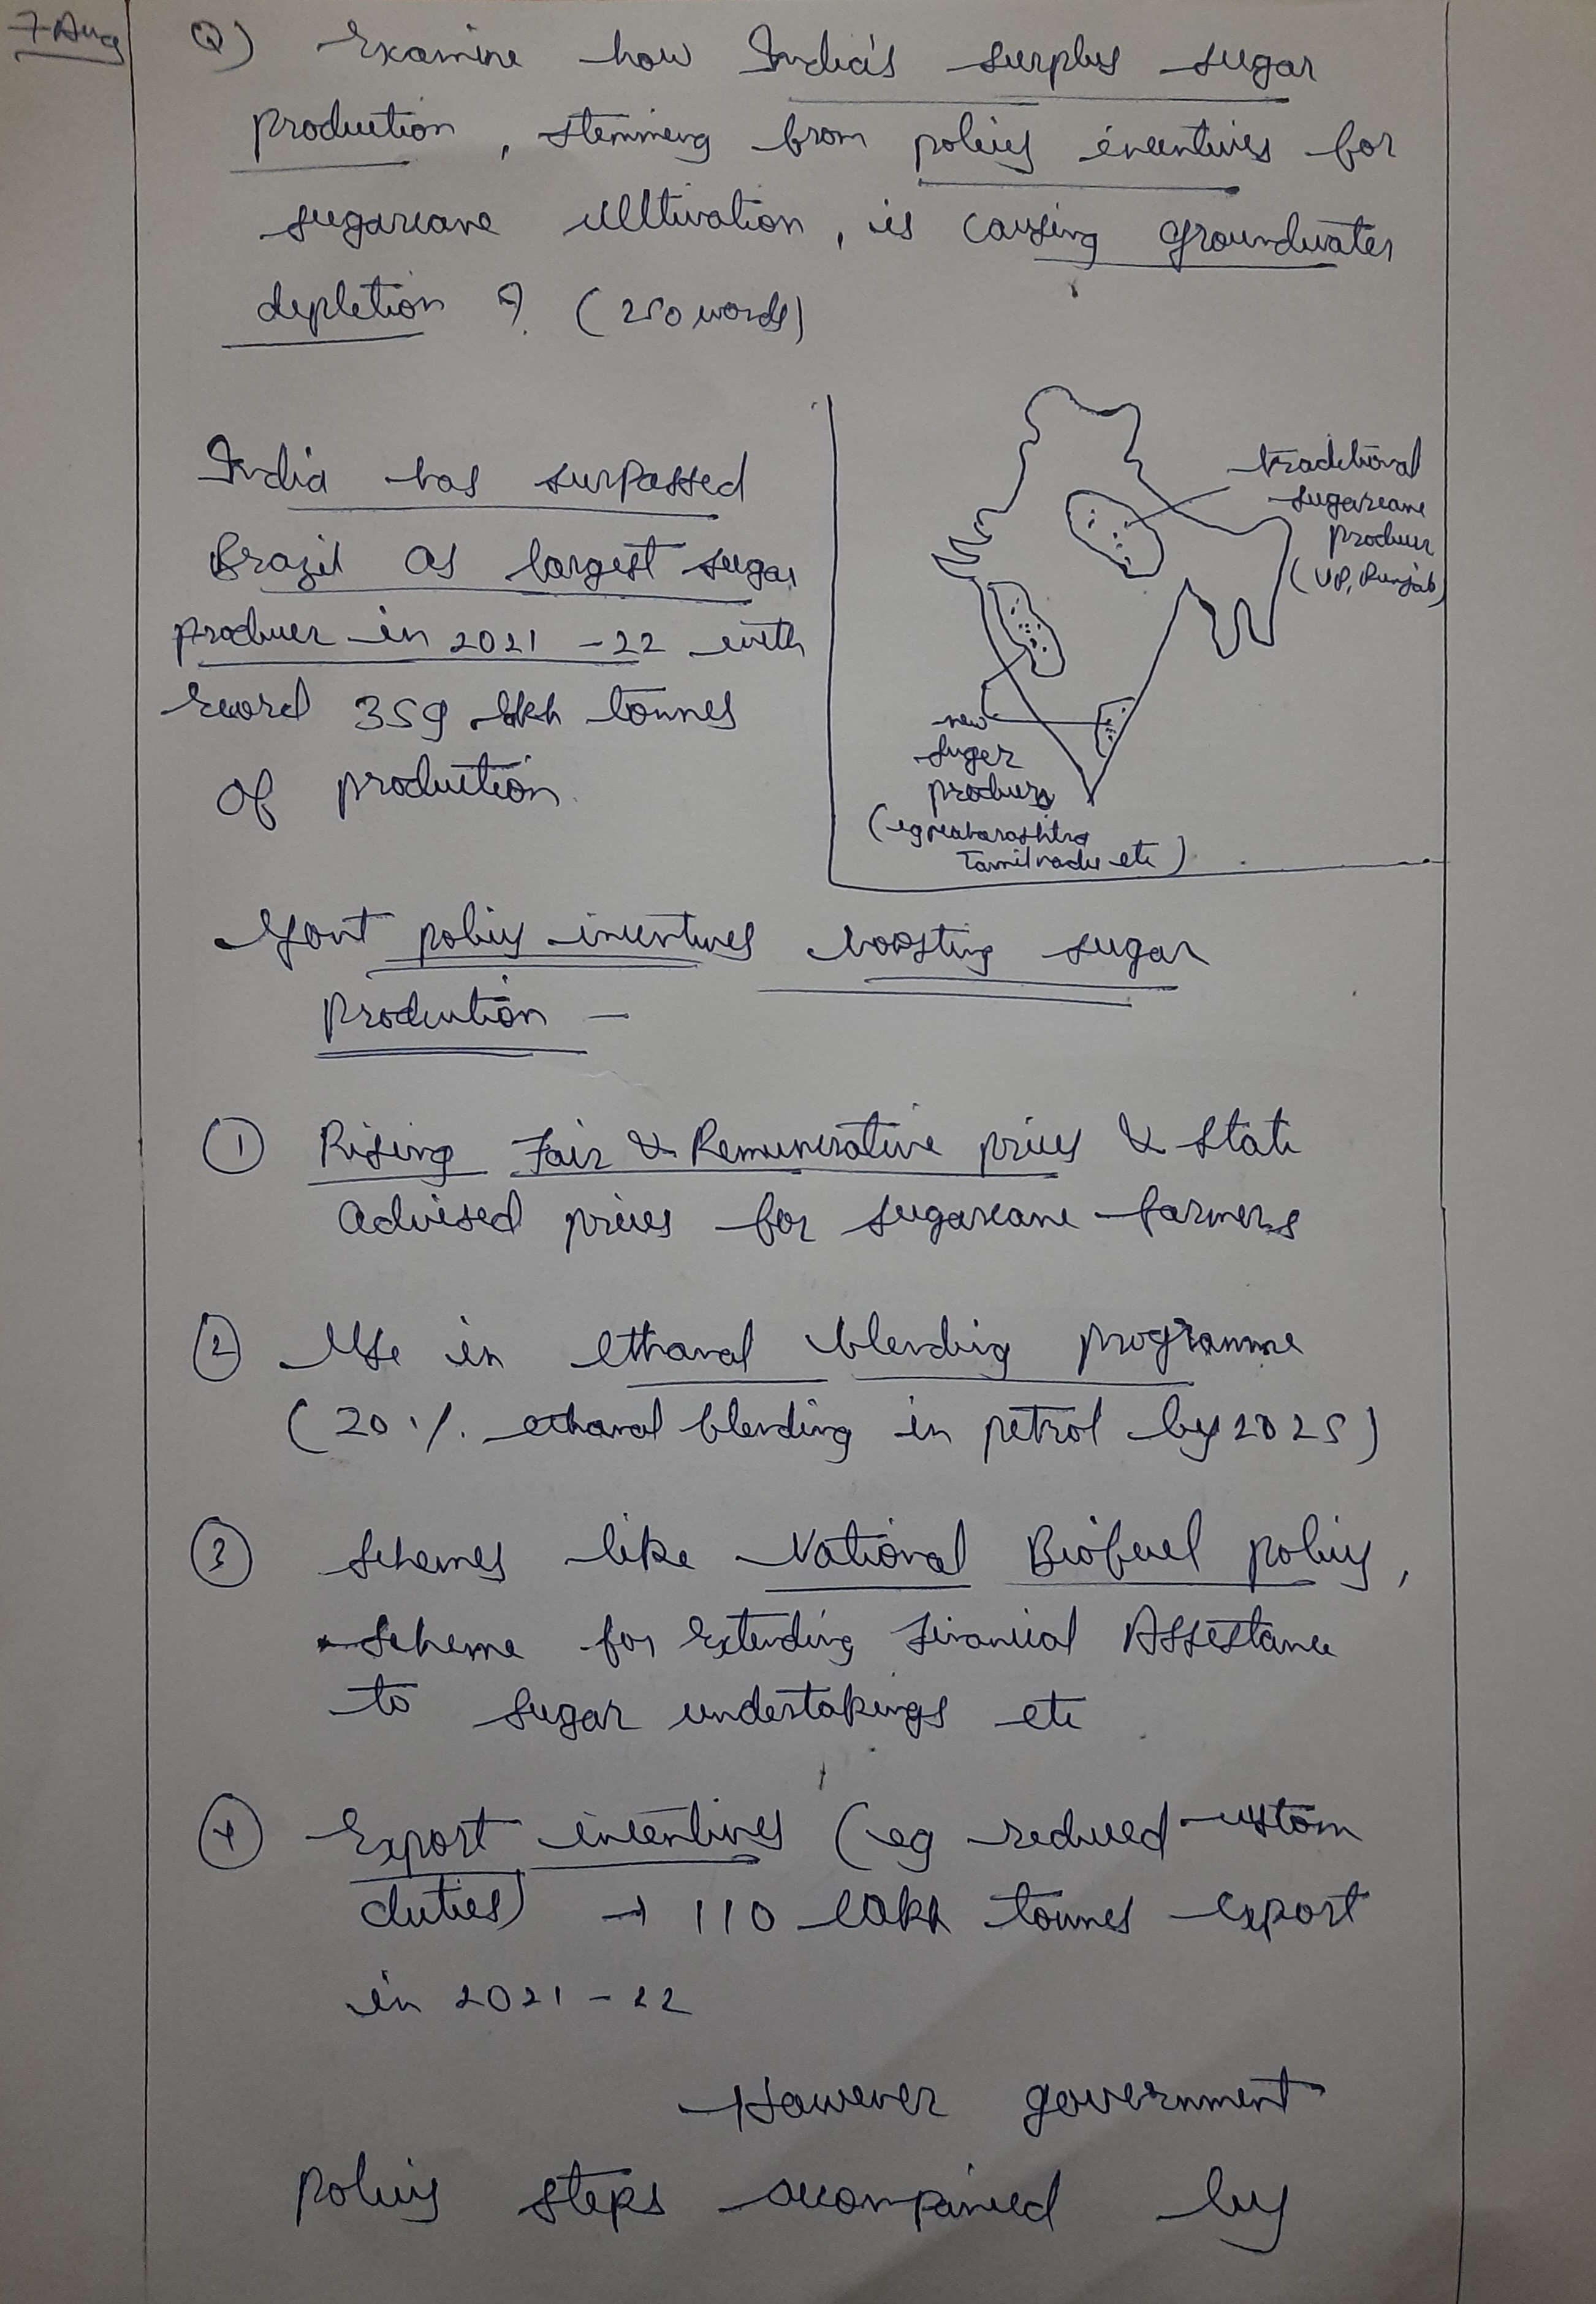 7 Aug
Q) Examine how India's surplus sugar
production, stemming from policy incentives for
sugarcane cultivation, is causing groundwater
depletion ? (250 words)
India has surpassed
Brazil as largest sugar
producer in 2021-22 with
record 359 lakh tonnes
of production.
traditional
sugarcane
producer
(UP, Punjab)
new
sugar
producers
(eg Maharashtra
Tamilnadu etc)
Govt policy incentives boosting sugar
production -
① Rising Fair & Remunerative prices & State
Advised prices for sugarcane farmers
② Use in ethanol blending programme
(20% ethanol blending in petrol by 2025)
③ Schemes like National Biofuel policy,
Scheme for Extending Financial Assistance
to sugar undertakings etc
④ Export incentives (eg reduced custom
duties) → 110 lakh tonnes export
in 2021-22
However government
policy steps accompanied by